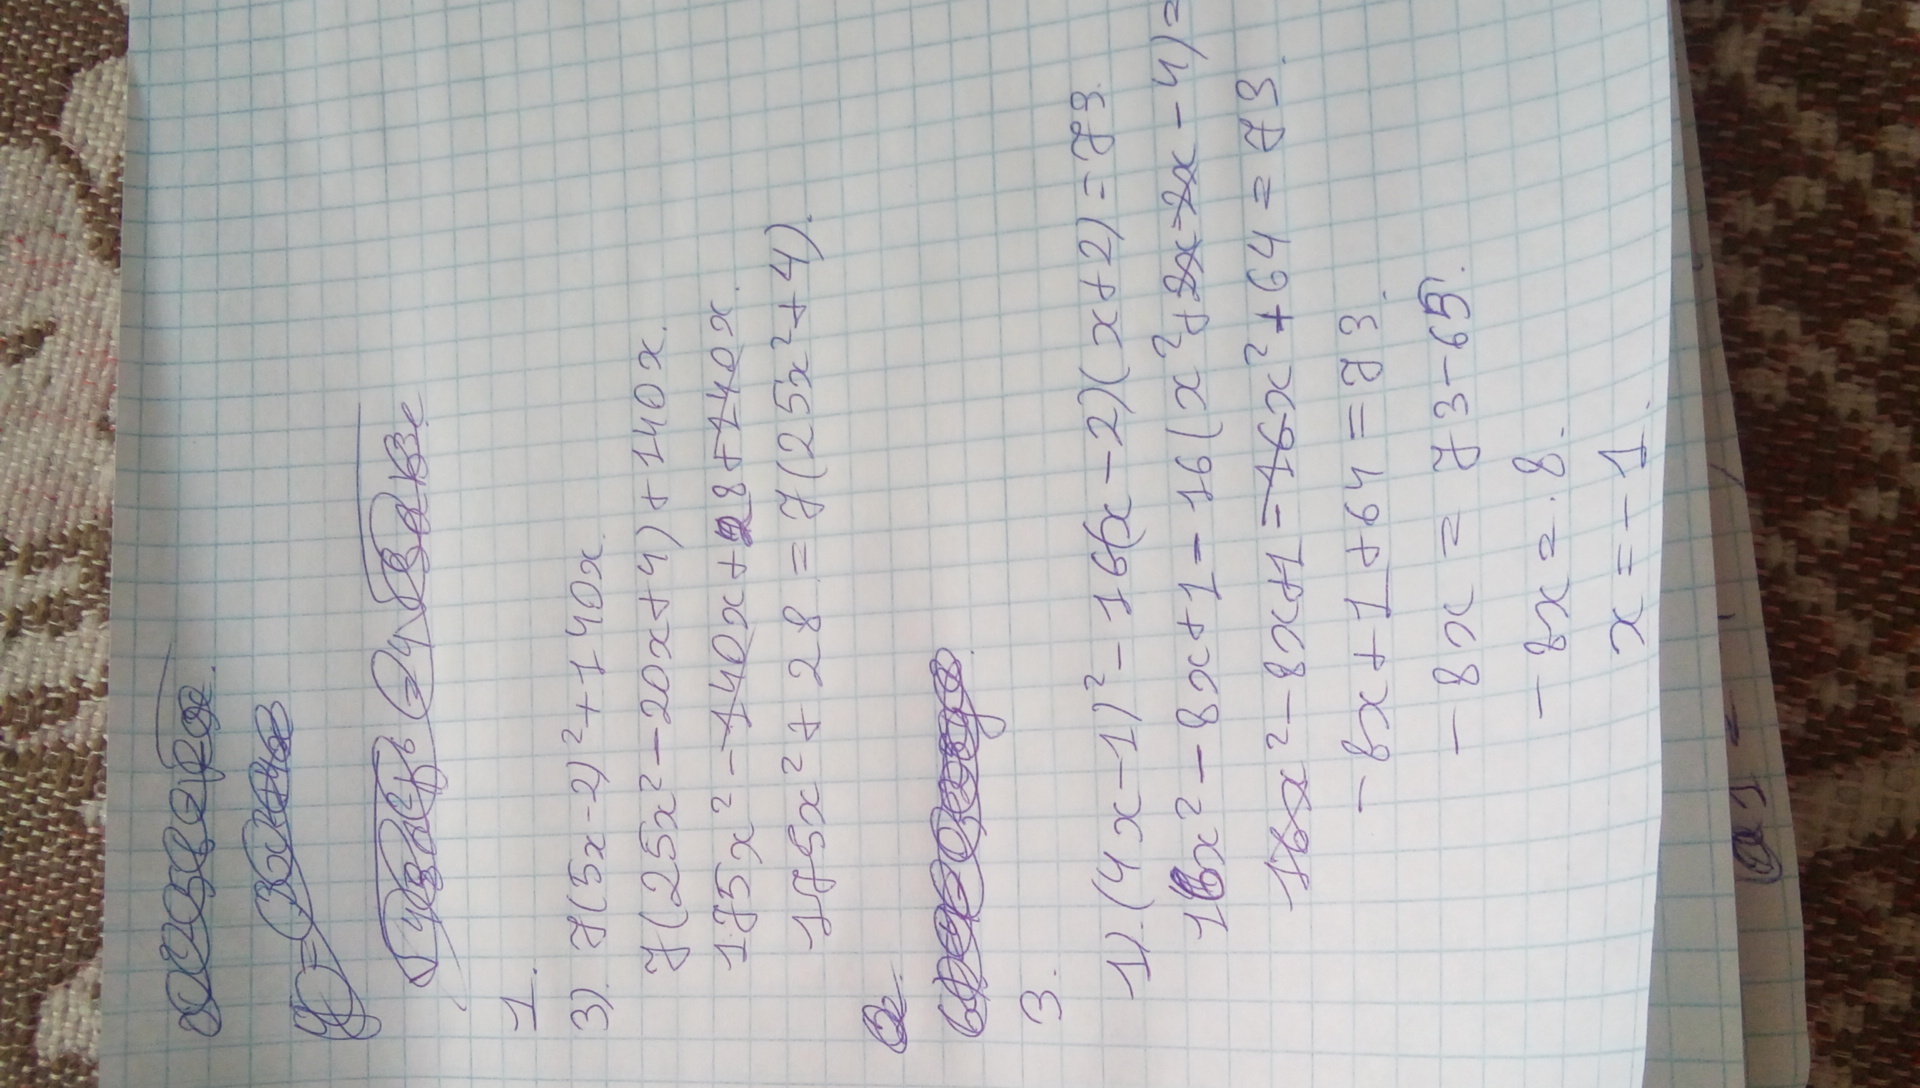 1.
3). 7(5x-2)²+140x.
7(25x²-20x+4)+140x.
175x²-140x+28+140x.
175x²+28=7(25x²+4).
3.
1).(4x-1)²-16(x-2)(x+2)=73.
16x²-8x+1-16(x²+2x-2x-4)=
16x²-8x+1-16x²+64=73.
-8x+1+64=73.
-8x=73-65.
-8x=8.
x=-1.